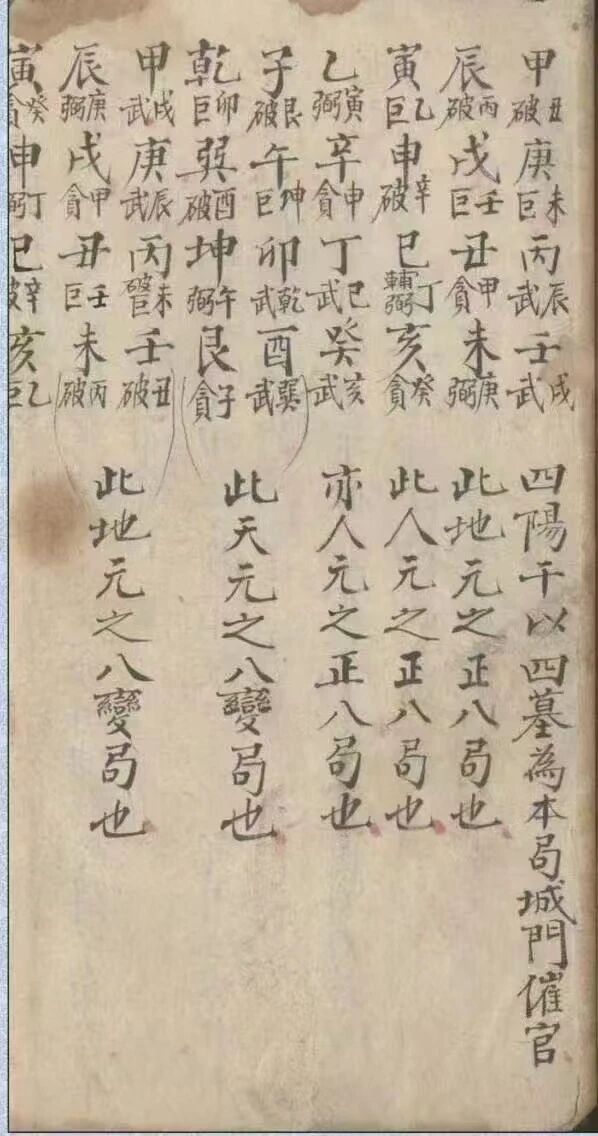 甲丑破庚未巨丙辰武壬戌武四陽干以四墓為本局城門催官
辰丙破戌壬巨丑甲貪未庚弼此地元之正八局也
寅乙巨申辛破巳丁輔弼亥癸貪此人元之正八局也
乙寅弼辛申貪丁巳武癸亥武亦人元之正八局也
子艮破午坤巨卯乾武酉巽武
乾卯巨巽酉破坤午弼艮子貪
此天元之八變局也
甲戌武庚辰武丙未巨壬丑破
辰庚弼戌甲貪丑壬巨未丙破
此地元之八變局也
寅癸貪申丁弼巳辛破亥乙巨